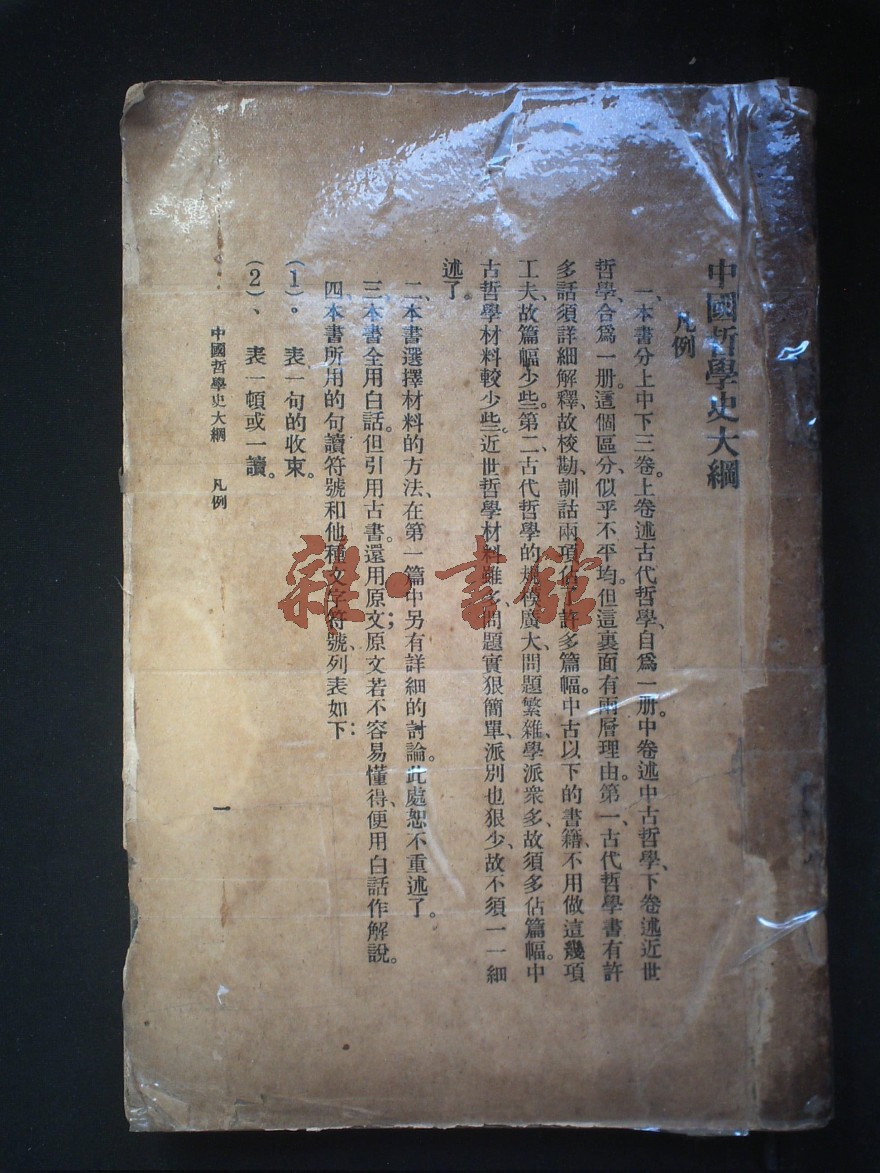 中國哲學史大綱
凡例
一、本書分上中下三卷。上卷述古代哲學、自爲一册。中卷述中古哲學、下卷述近世
哲學、合爲一册。這個區分、似乎不平均。但這裏面有兩層理由。第一、古代哲學書有許
多話須詳細解釋、故校勘、訓詁兩項佔了許多篇幅。中古以下的書籍、不用做這幾項
工夫、故篇幅少些。第二、古代哲學的規模廣大、問題繁雜、學派衆多、故須多佔篇幅。中
古哲學材料較少些。近世哲學材料雖多、問題實狠簡單、派別也狠少、故不須一一細
述了。
二、本書選擇材料的方法、在第一篇中另有詳細的討論。此處恕不重述了。
三、本書全用白話。但引用古書。還用原文；原文若不容易懂得、便用白話作解說。
四、本書所用的句讀符號和他種文字符號、列表如下：
(1)。　表一句的收束。
(2)、　表一頓或一讀。
中國哲學史大綱　凡例
一
雜·書館